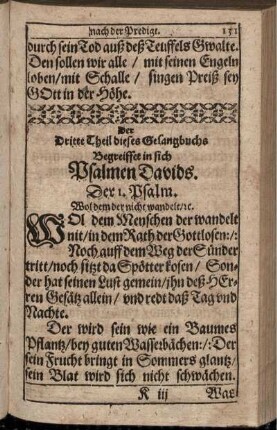 nach der Predigt. 151
durch sein Tod auß deß Teuffels Gwalte.
Den sollen wir alle / mit seinen Engeln
loben / mit Schalle / singen Preiß sey
GOtt in der Höhe.
Der
Dritte Theil dieses Gesangbuchs
Begreiffet in sich
Psalmen Davids.
Der 1. Psalm.
Wol dem der nicht wandelt/ ꝛc.
WOl dem Menschen der wandelt
nit / in dem Rath der Gottlosen:/:
Noch auff dem Weg der Sünder
tritt / noch sitzt da Spötter kosen / Son-
der hat seinen Lust gemein / jhn deß HEr-
ren Gesätz allein / vnd redt daß Tag vnd
Nachte.
Der wird sein wie ein Baumes
Pflantz / bey guten Wasserbächen:/: Der
sein Frucht bringt in Sommers glantz /
sein Blat wird sich nicht schwächen.
K iij Was